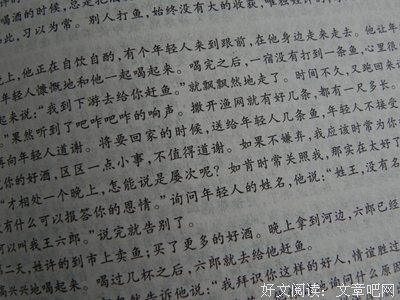 喝酒的时候,总是把酒
此,习以为常。别人打鱼,始终没有大的收获,唯独姓许的
晚上,他正在自饮自酌,有个年轻人来到跟前,在他身边走来走去。他让年
年轻人慷慨地和他一起喝起来。喝完之后,一宿没有打到一条鱼,心里很
起来说:“我到下游去给你赶鱼。”就飘飘然地走了。时间不久,又跑回来说
”果然听到了吧咋吧咋的响声。撒开渔网就有好几条,都有一尺多长。
再向年轻人道谢。将要回家的时候,送给年轻人几条鱼,年轻人不接受
你的好酒,区区一点小事,不值得道谢。如果不嫌弃,我应该时常为你
“才相处一个晚上,怎能说是屡次呢?如肯时常关照我,那实在太好了
有什么可以报答你的恩情。”询问年轻人的姓名,他说:“姓王,没有名
可以叫我王六郎。”说完就告别了。
第二天,姓许的到市上卖鱼;买了更多的好酒。晚上拿到河边,六郎已经
兴兴地喝起来。喝过几杯之后,六郎就去给他赶鱼。
然告诉他说:“我拜识你这样的好人,情谊胜过
询问什么原因
好文阅读:文章吧网